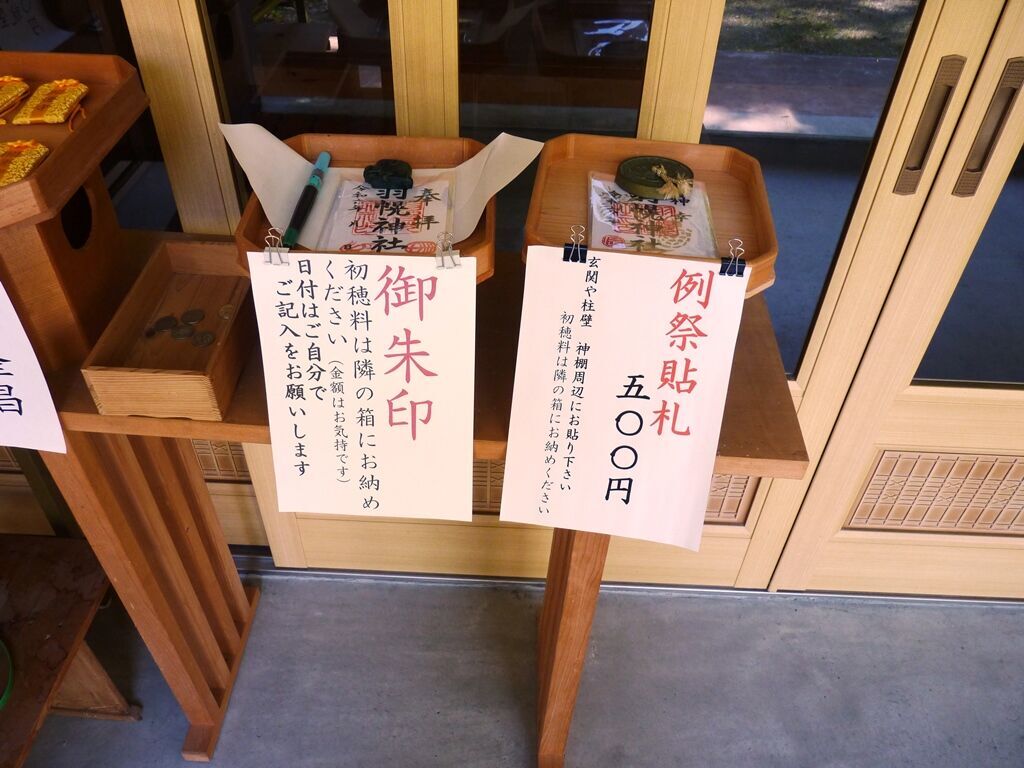 奉拝
羽幌神社
御朱印
初穂料は隣の箱にお納め
ください（金額はお気持です）
日付はご自分で
ご記入をお願いします
例祭貼札
五〇〇円
玄関や柱壁 神棚周辺にお貼り下さい
初穂料は隣の箱にお納めください